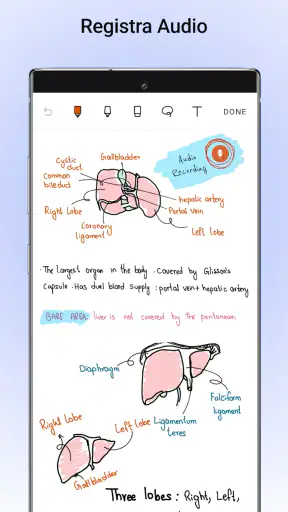 Registra Audio
T DONE
Cystic
duct
Gallbladder
Common
bile duct
Audio
Recording
hepatic artery
Portal vein
Right Lobe
Coronary
ligament
Left lobe
· The largest organ in the body · Covered by Glisson's
Capsule · Has duel bland supply : portal vein + hepatic artery
BARE AREA: liver is not covered by the peritoneum
Diaphragm
Falciform
ligament
Right lobe
Left lobe
Ligamentum
teres
Gallbladder
Three lobes : Right, Left,